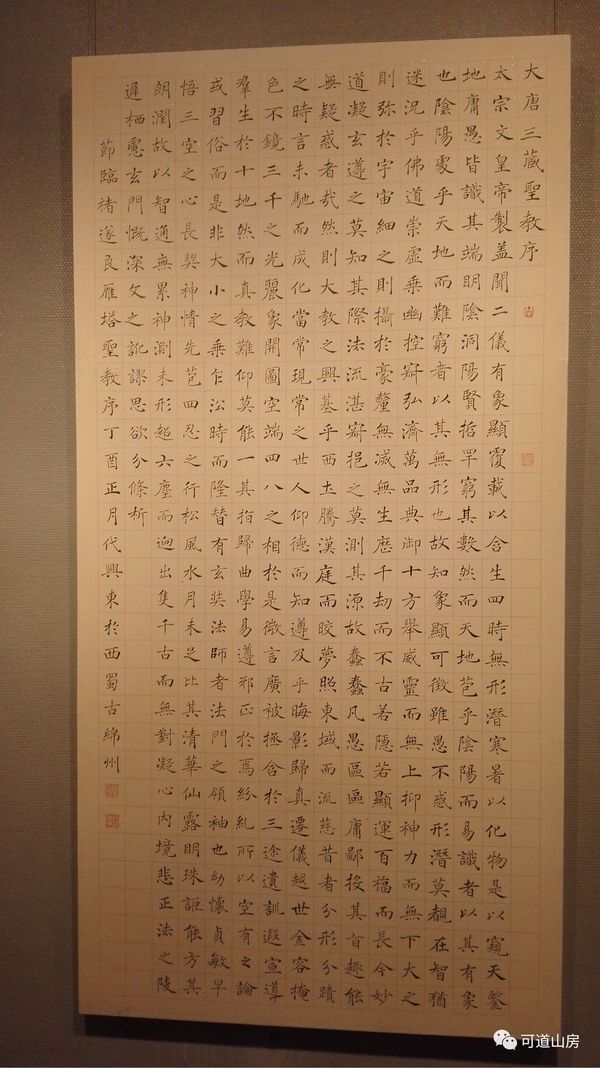 大唐三藏聖教序
太宗文皇帝製蓋聞二儀有象顯覆載以含生四時無形潛寒暑以化物是以窺天鑒
地庸愚皆識其端明陰洞陽賢哲罕窮其數然而天地苞乎陰陽而易識者以其有象
也陰陽處乎天地而難窮者以其無形也故知象顯可徵雖愚不惑形潛莫覩在智猶
迷況乎佛道崇虛乘幽控寂弘濟萬品典御十方舉威靈而無上抑神力而無下大之
則弥於宇宙細之則攝於豪釐無滅無生歷千劫而不古若隱若顯運百福而長今妙
道凝玄遵之莫知其際法流湛寂挹之莫測其源故蠢蠢凡愚區區庸鄙投其旨趣能
無疑惑者哉然則大教之興基乎西土騰漢庭而皎夢照東域而流慈昔者分形分蹟
之時言未馳而成化當常現常之世人仰德而知遵及乎晦影歸真遷儀越世金容掩
色不鏡三千之光麗象開圖空端四八之相於是微言廣被拯含於三途遺訓遐宣導
羣生於十地然而真教難仰莫能一其指歸曲學易遵邪正於焉紛糺所以空有之論
或習俗而是非大小之乘乍沿時而隆替有玄奘法師者法門之領袖也幼懷貞敏早
悟三空之心長契神情先苞四忍之行松風水月未足比其清華仙露明珠詎能方其
朗潤故以智通無累神測未形超六塵而迥出隻千古而無對凝心內境悲正法之陵
遲栖慮玄門慨深文之訛謬思欲分條析
節臨褚遂良雁塔聖教序丁酉正月代興東於西蜀古綿州
可道山房